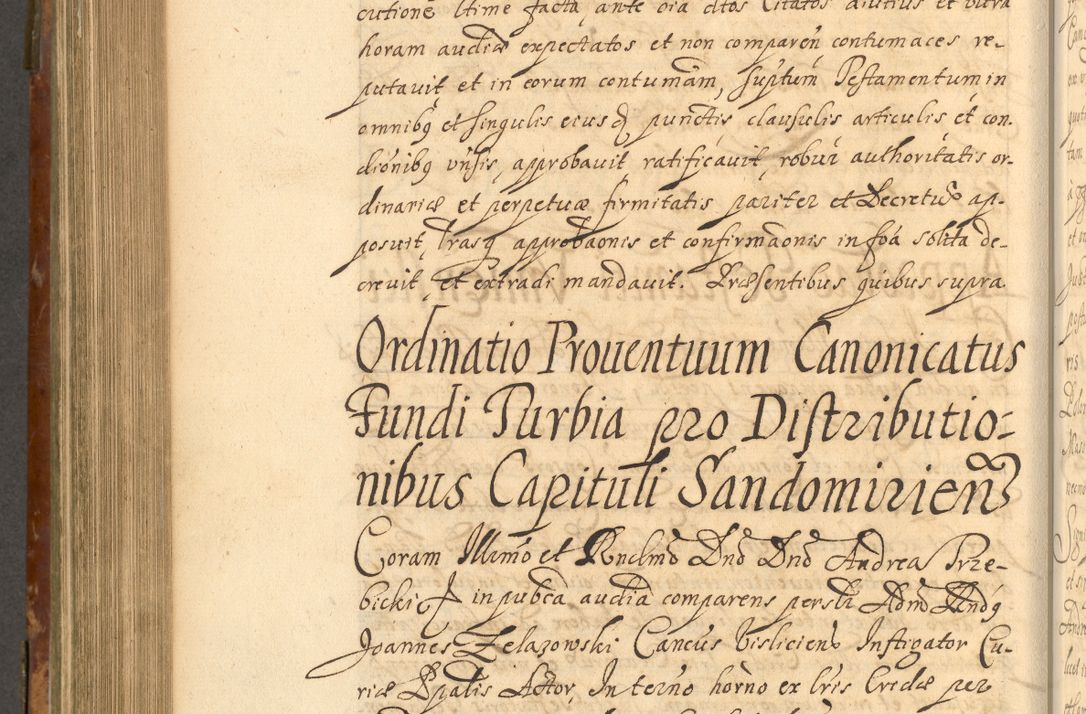 cutione ltime facta, ante oia dtos Citatos diutius et ultra
horam audiæ expectatos et non comparen contumaces re-
putavit et in eorum contumam, suptum Testamentum in
omnibq et singulis eius q punctis clausulis articulis et con-
dionibq vnsis, approbauit ratificauit, robur authoritatis or-
dinariæ et perpetuæ firmitatis pariter et Decretu ap-
posuit, lrasq approbaonis et confirmaonis in foa solita de-
crevit, et extradi mandavit. Præsentibus quibus supra
Ordinatio Prouentuum Canonicatus
Fundi Turbia pro Distributio=
nibus Capituli Sandomirien
Coram Illmo et Rndmo Dno Dno Andrea Trze-
bicki in pubca audia comparens persli Admd Rndq
Joannes Zelazowski Cancus Visliciens Instigator Cu-
riæ Epalis Actor, In terno horno ex lris Credæ per